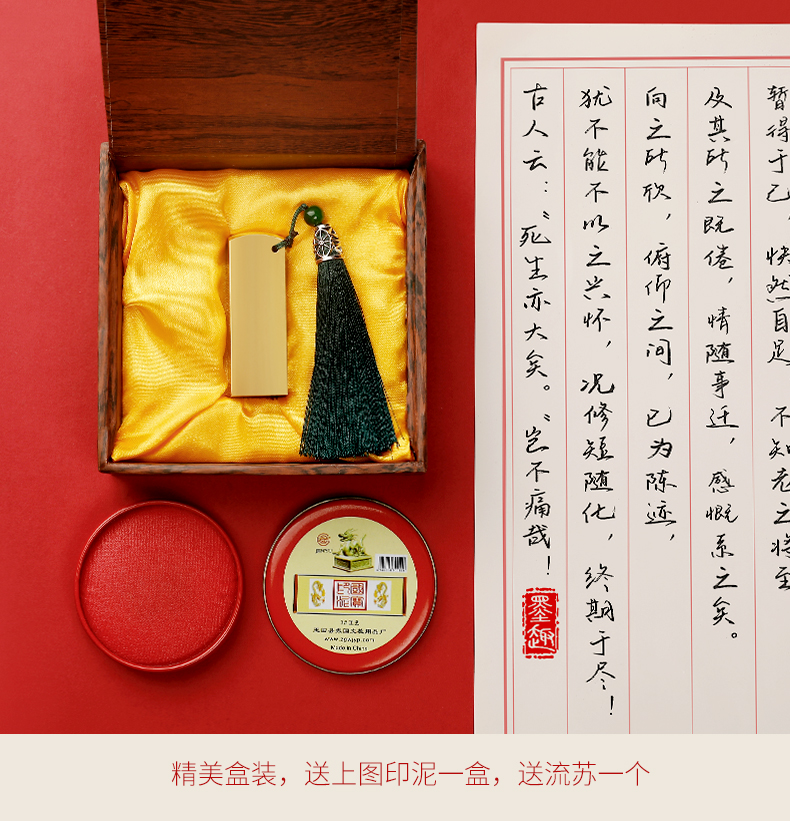 暂得于己，快然自足，不知老之将至
及其所之既倦，情随事迁，感慨系之矣。
向之所欣，俯仰之间，已为陈迹，
犹不能不以之兴怀，况修短随化，终期于尽！
古人云：“死生亦大矣。”岂不痛哉！
墨趣
国宝
印泥
www.zgwjyp.com
Made in China
精美盒装，送上图印泥一盒，送流苏一个